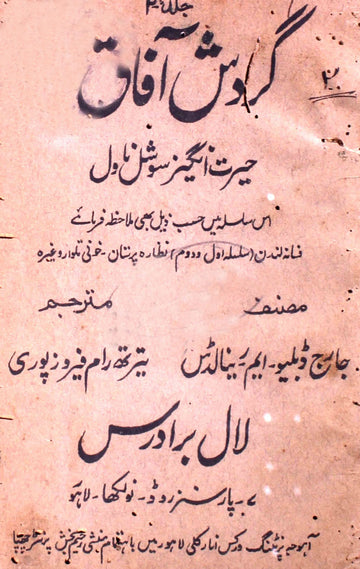 جلد ۴
گردش آفاق
حیرت انگیز سوشل ناول
اس سلسلہ میں حسب ذیل بھی ملاحظہ فرمائے
فسانہ لندن (سلسلہ اول و دوم) نظارہ پرستان - خونی تلوار وغیرہ
مصنف مترجم
جارج ڈبلیو - ایم - رینالڈس تیرتھ رام فیروزپوری
لال برادرس
۷ - پارسنز روڈ - نولکھا - لاہور
آہوجہ پرنٹنگ ورکس انارکلی لاہور میں باہتمام منشی رحیم بخش پرنٹر چھپا